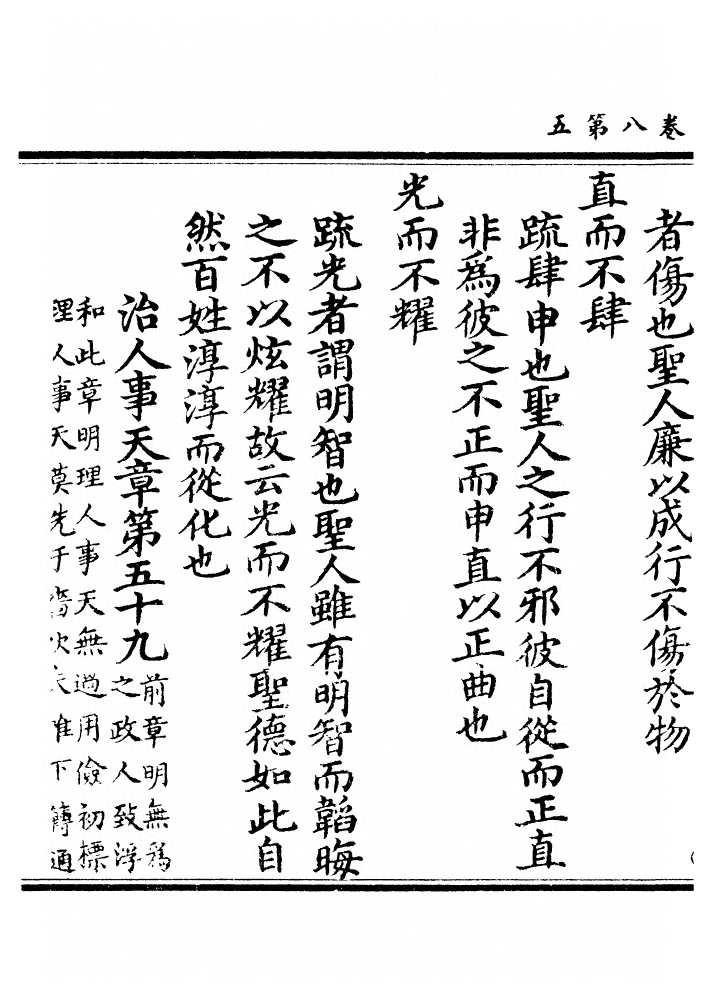 卷八第五
者傷也聖人廉以成行不傷於物
直而不肆
疏肆申也聖人之行不邪彼自從而正直
非為彼之不正而申直以正曲也
光而不耀
疏光者謂明智也聖人雖有明智而韜晦
之不以炫耀故云光而不耀聖德如此自
然百姓淳淳而從化也
治人事天章第五十九前章明無為
之政人致淳
和此章明理人事天無過用儉初標
理人事天莫先于嗇次夫惟下通